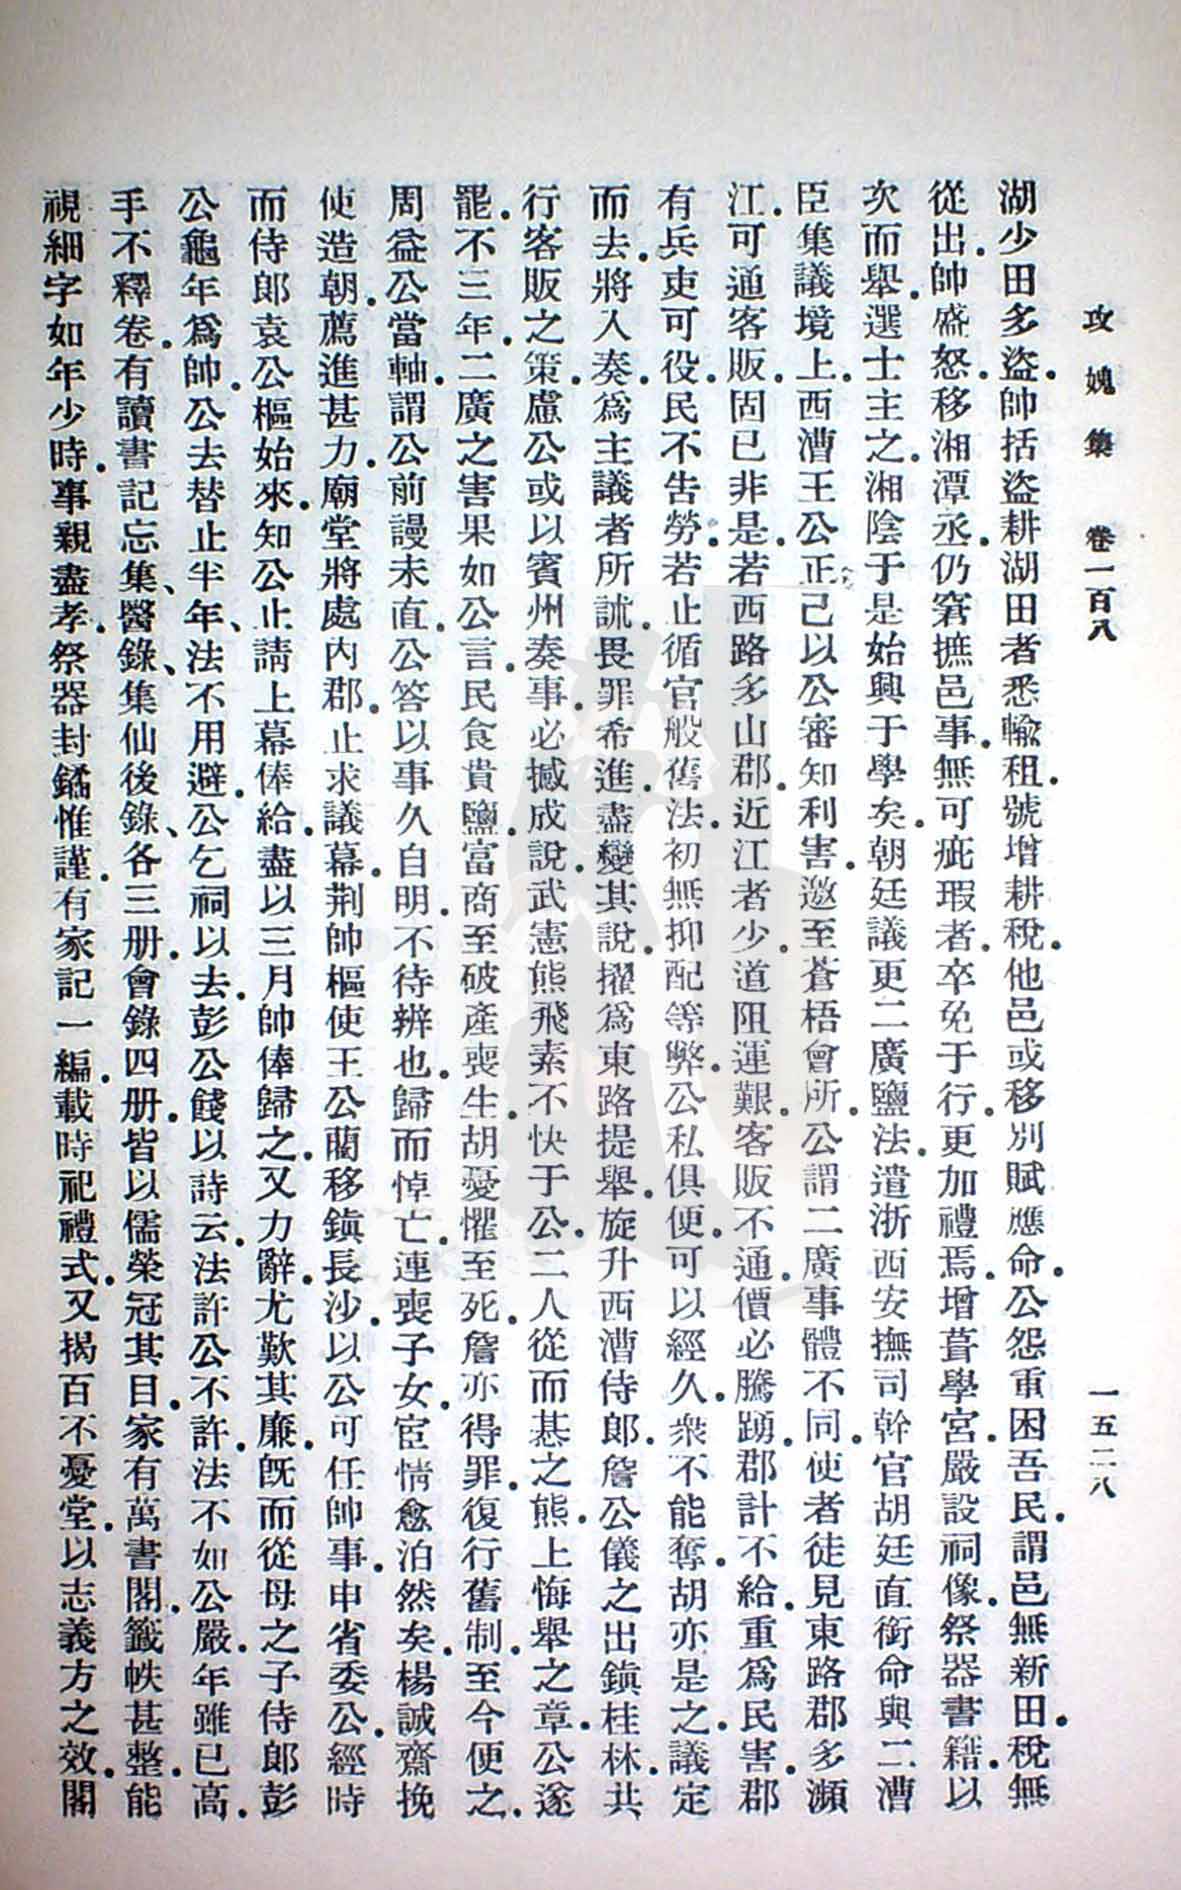 攻媿集 卷一百八 一五二八
湖少田多盜帥括盜耕湖田者悉輸租號增耕稅他邑或移別賦應命公怨重困吾民謂邑無新田稅無
從出帥盛怒移湘潭丞仍窘摭邑事無可疵瑕者卒免于行更加禮焉增葺學宮嚴設祠像祭器書籍以
次而舉選士主之湘陰于是始興于學矣朝廷議更二廣鹽法遣浙西安撫司幹官胡廷直銜命與二漕
臣集議境上西漕王公正己以公審知利害邀至蒼梧會所公謂二廣事體不同使者徒見東路郡多瀕
江可通客販固已非是若西路多山郡近江者少道阻運艱客販不通價必騰踴郡計不給重為民害郡
有兵吏可役民不告勞若止循官般舊法初無抑配等弊公私俱便可以經久衆不能奪胡亦是之議定
而去將入奏為主議者所訹畏罪希進盡變其說擢為東路提舉旋升西漕侍郎詹公儀之出鎮桂林共
行客販之策慮公或以賓州奏事必撼成說武憲熊飛素不快于公二人從而惎之熊上悔舉之章公遂
罷不三年二廣之害果如公言民食貴鹽富商至破產喪生胡憂懼至死詹亦得罪復行舊制至今便之
周益公當軸謂公前謾未直公答以事久自明不待辨也歸而悼亡連喪子女宦情愈泊然矣楊誠齋挽
使造朝薦進甚力廟堂將處內郡止求議幕荆帥樞使王公藺移鎮長沙以公可任帥事申省委公經時
而侍郎袁公樞始來知公止請上幕俸給盡以三月帥俸歸之又力辭尤歎其廉既而從母之子侍郎彭
公龜年為帥公去替止半年法不用避公乞祠以去彭公餞以詩云法許公不許法不如公嚴年雖已高
手不釋卷有讀書記忘集醫錄集仙後錄各三册會錄四册皆以儒榮冠其目家有萬書閣籤帙甚整能
視細字如年少時事親盡孝祭器封鐍惟謹有家記一編載時祀禮式又揭百不憂堂以志義方之效閣